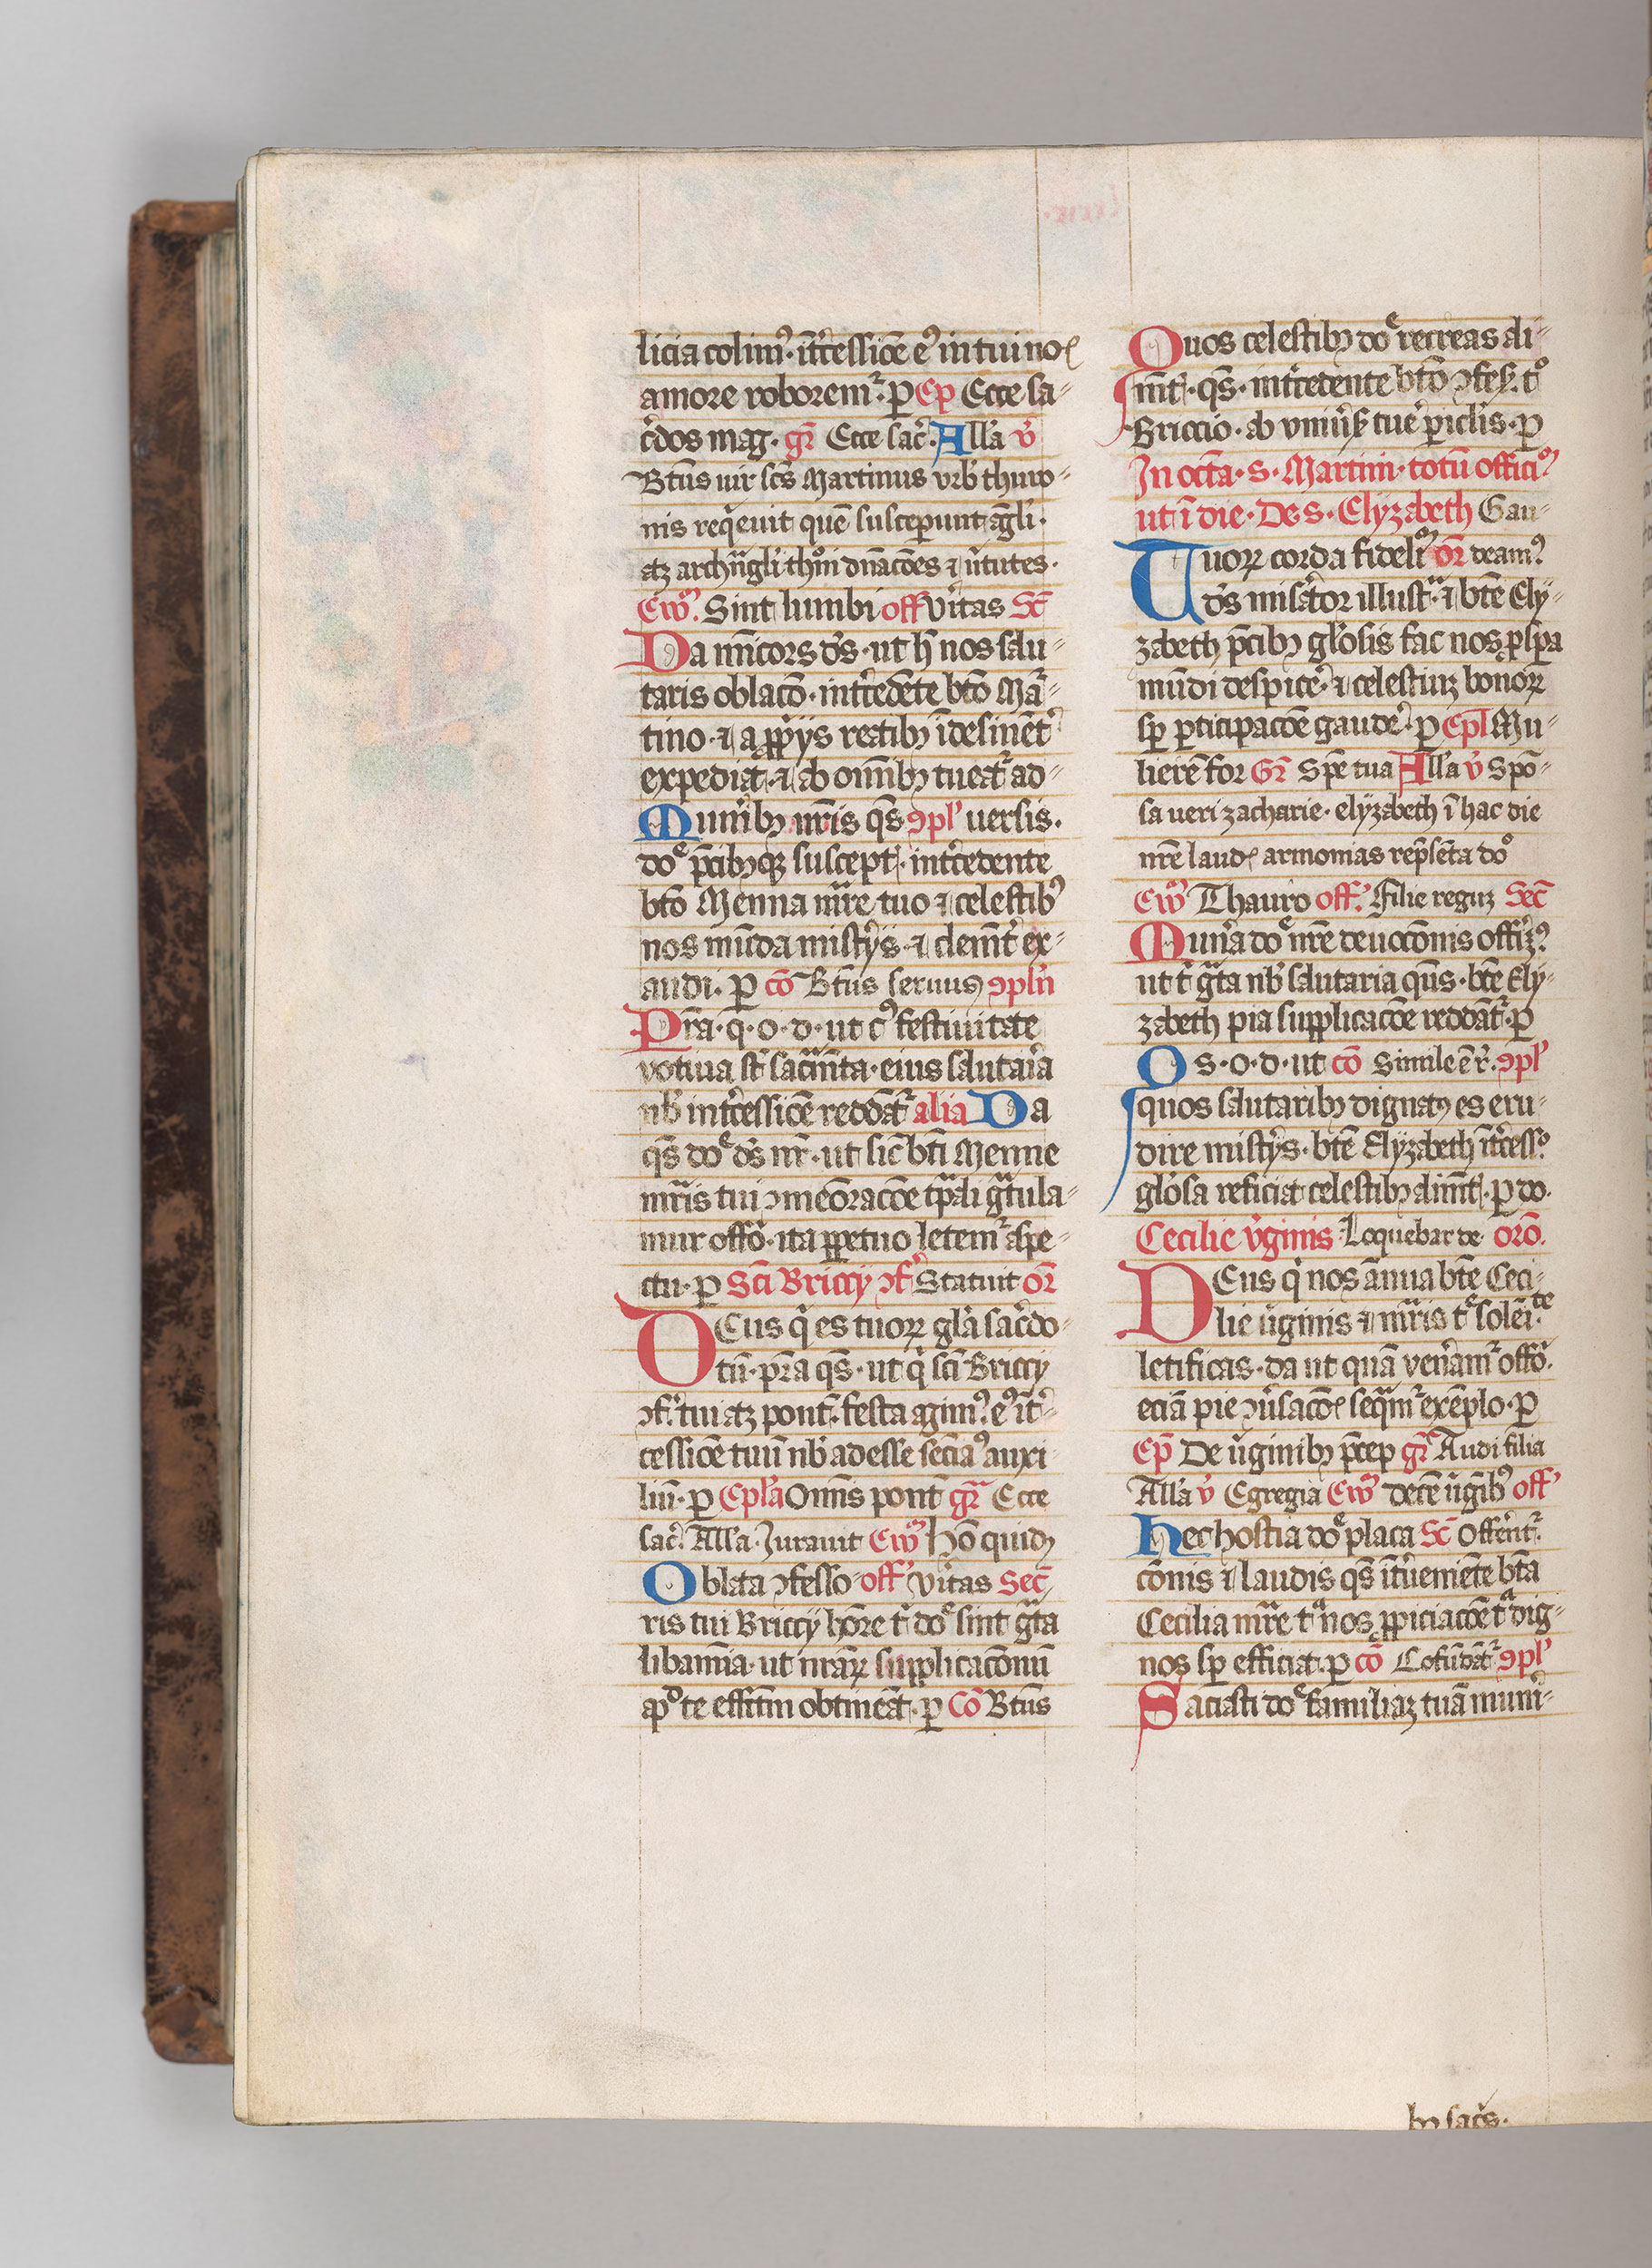 licia colim⁹· it̄c̄essiōe e⁹ in tui noꝭ
amore roborem᷑· ꝑ Ep̄ Ecce sa-
c̄dos mag· gr̄ Ecce sac̄· All'a v̄
Bt̄us uir sc̄s Martinus vrb' thuro-
nis req̄euit quē susceperunt āgli·
atꝫ archāgli thͦni dn̄acōes ⁊ v̄tutes·
Ew̄⁹· Sint lumbi off' v̄itas Sc̄
Da mīcors d̄s· ut h̄ nos salu-
taris oblacō· int̄cedēte bt̄o Mar-
tino· ⁊ a ꝓprijs reatibꝫ īdesinēt̄
expediat· ⁊ ab oīnibꝫ tueat᷑ ad-
Munibꝫ nr̄is qs̄ ɔpl' uersis·
dōe p̄cibꝫqꝫ suscept̄· int̄cedente
bt̄o Menna mr̄e tuo ⁊ celestib⁹
nos mūda mist̄ijs· ⁊ clemt̄ ex-
audi· ꝑ cō Bt̄us seruus ɔpln̄
Pr̄a· q̄· o· d· ut c⁹ festiuitate
votiua st̄ sacm̄ta· eius salutaīa
nb̄ int̄cessiōe reddāt᷑ alia Da
qs̄ dōe d̄s nr̄· ut sic̄ bt̄i Menne
mr̄is tui ɔmeōracōe tp̄ali gᵃtula-
mur offō· ita ꝑpetuo letem᷑ aspe-
ctu· ꝑ Sc̄i Briccij ɔf' Statuit or̄
DEus q̄ es tuoꝝ gl'a sac̄do-
tū· p̄ra qs̄· ut q̄ sc̄i Briccij
ɔf' tui atꝫ pont̄· festa agim⁹· e⁹ it̄-
cessiōe tuū nb̄ adesse sēcia⁹ auxi
liū· ꝑ Epl'a Om̄is pont̄ gr̄ Ecce
sac̄· All'a· Jurauit Ew̄⁹ Hō quidꝫ
Oblata ɔfesso- off' v̄itas Sec̄
ris tui Briccij hōre t' dōe sint gᵃta
libamīa· ut nr̄aꝝ supplicacōnū
apͦ te effēm obtineāt· ꝑ Cō Bt̄us
Quos celestibꝫ dōe recreas ali-
mt̄· qs̄· int̄cedente bt̄o ɔfes̄· tͦ
Briccio· ab vniūs̄ tue' ꝑiclis· ꝑ
In octa· s· Martini· totū offici⁹
ut ī die· De· s· Elyzabeth Gau-
Tuoꝝ corda fideliͫ or̄ deam⁹
d̄s mis̄ator illust̄ᵃ· ⁊ bt̄e Ely-
zabeth p̄cibꝫ gl'osis fac nos ꝓspa
mūdi despice'· ⁊ celestiuꝫ bonoꝝ
sp̄ ꝑticipacōe gaude'· ꝑ Epl' Mu-
lierē for Gr̄ Spē tua All'a v̄ Spō-
sa ueri zacharie· elyzabeth ī hac die
nr̄e laudꝭ armonias rep̄sēta dōͦ
Ew̄⁹ Thauro off'· Filie reguꝫ Sec̄
Munīa dōe nr̄e deuocōnis offi'⁹
ut t' gᵃta nb̄ salutaria qūs· bt̄e Ely-
zabeth pia supplicacōe reddāt᷑· ꝑ
O s· o· d· ut cō Simile ē r̄· ɔpl'
quos salutaribꝫ dignatꝰ es eru-
dire mist̄ijs· bt̄e Elyzabeth īt̄cess̄ͦ
gl'osa reficiat celestibꝫ alimt̄· ꝑ do·
Cecilie v̄ginis Loquebar de orō·
DEus q̄ nos ānua bt̄e Ceci-
lie v̄ginis ⁊ mr̄is tᵉ solēi·te
letificas· da ut quā venāam᷑ offō·
eciā pie ɔūsacōꝭ seqᵃm᷑ exēplo· ꝑ
Ep̄ De v̄ginibꝫ p̄cep gr̄ Audi filia
All'a v̄ Egregia Ew̄⁹ decē v̄gib⁹ off'
Hec hostia dōe placa Sc̄ Offerēt᷑·
cōnis ⁊ laudis qs̄ īt̄ueniēte bt̄a
Cecilia mr̄e tᵃ nos ꝓpiciacōe tᵃ dig-
nos sp̄ efficiat· ꝑ cō Cofūdāt᷑ ɔpl'
Saciasti dōe familiaꝫ tuā muni-
bꝫ sac̄s·